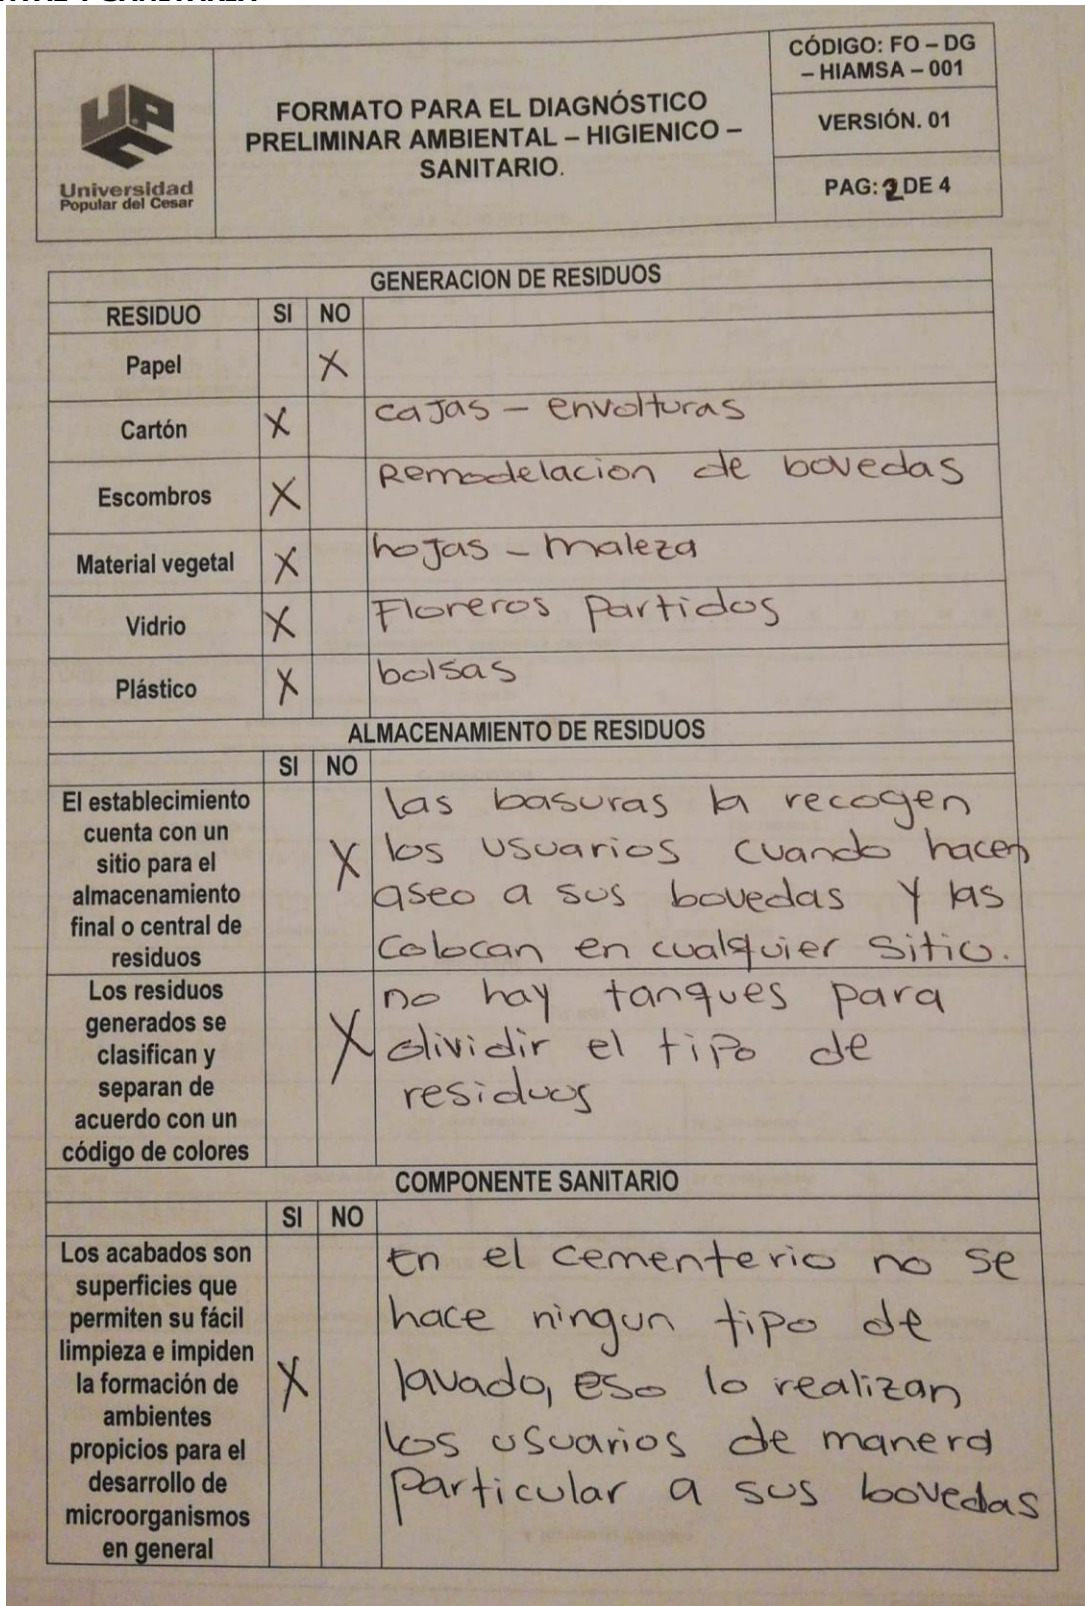 CÓDIGO: FO – DG
– HIAMSA – 001
UPC
Universidad
Popular del Cesar
FORMATO PARA EL DIAGNÓSTICO
PRELIMINAR AMBIENTAL – HIGIENICO –
SANITARIO.
VERSIÓN. 01
PAG: 2 DE 4
GENERACION DE RESIDUOS
RESIDUO SI NO
Papel X
Cartón X cajas – envolturas
Escombros X Remodelacion de bovedas
Material vegetal X hojas – maleza
Vidrio X Floreros partidos
Plástico X bolsas
ALMACENAMIENTO DE RESIDUOS
SI NO
El establecimiento
cuenta con un
sitio para el
almacenamiento
final o central de
residuos
X
las basuras la recogen
los usuarios cuando hacen
aseo a sus bovedas y las
colocan en cualquier sitio.
Los residuos
generados se
clasifican y
separan de
acuerdo con un
código de colores
X
no hay tanques para
dividir el tipo de
residuos
COMPONENTE SANITARIO
SI NO
Los acabados son
superficies que
permiten su fácil
limpieza e impiden
la formación de
ambientes
propicios para el
desarrollo de
microorganismos
en general
X
En el cementerio no se
hace ningun tipo de
lavado, eso lo realizan
los usuarios de manera
particular a sus bovedas